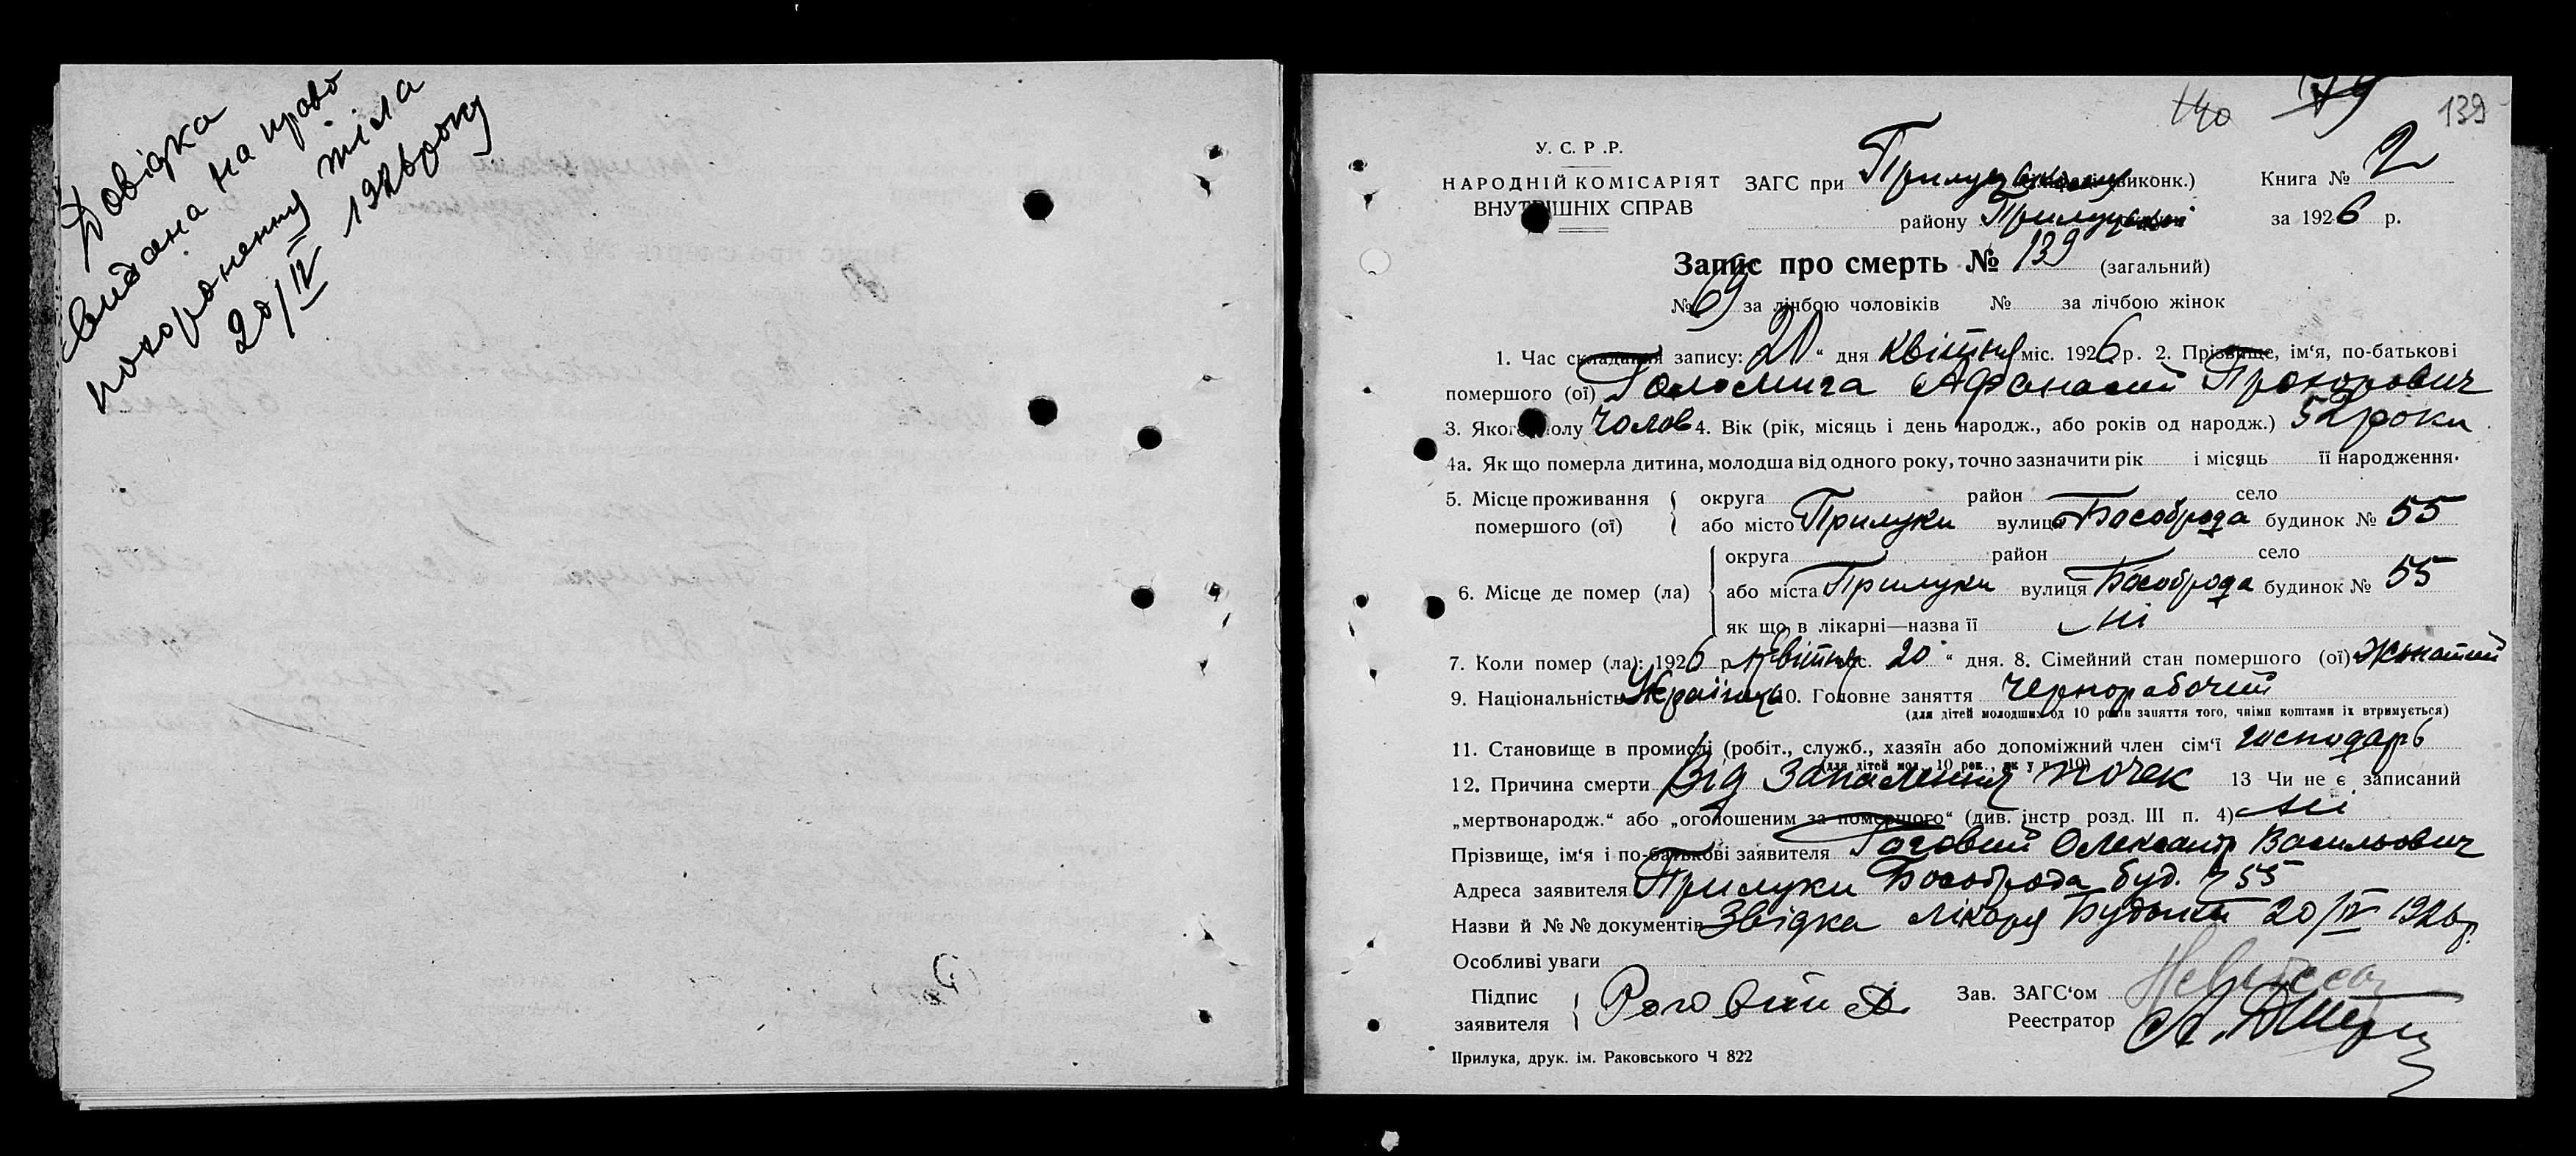 Довідка
видана на право
похоронення тіла
20/IV 1926 року
140 79 139
У. С. Р. Р.
НАРОДНІЙ КОМІСАРІЯТ
ВНУТРІШНІХ СПРАВ
ЗАГС при Прилуцькому виконк.) Книга № 2
району Прилуцької за 1926 р.
Запис про смерть № 139 (загальний)
№ 69 за лічбою чоловіків № за лічбою жінок
1. Час складання запису: 20 “ дня квітня міс. 1926 р. 2. Прізвище, ім‘я, по-батькові
помершого (ої) Голомига Афанасий Прохорович
3. Якого полу Чолов 4. Вік (рік, місяць і день народж., або років од народж.) 52 роки
4а. Як що померла дитина, молодша від одного року, точно зазначити рік і місяць її народження.
5. Місце проживання округа район село
помершого (ої) або місто Прилуки вулиця Бособрода будинок № 55
округа район село
6. Місце де помер (ла) або міста Прилуки вулиця Бособрода будинок № 55
як що в лікарні—назва її Ні
7. Коли помер (ла): 1926 р. квітня міс. 20 “ дня. 8. Сімейний стан помершого (ої) Жонатий
9. Національність Українець 10. Головне заняття Чернорабочий
(для дітей молодших од 10 років заняття того, чиїми коштами їх втримується)
11. Становище в промислі (робіт., служб., хазяїн або допоміжний член сім‘ї господарь
(для дітей мол. 10 рок., як у п. 10)
12. Причина смерти Від Запалення почек 13 Чи не є записаний
„мертвонародж.“ або „оголошеним за помершого“ (див. інстр розд. III п. 4) Ні
Прізвище, ім‘я і по-батькові заявителя Роговий Олександр Васильович
Адреса заявителя Прилуки Бособрода буд. № 55
Назви й № № документів Звідка лікаря 20/IV 1926 р.
Особливі уваги
Підпис
заявителя Роговий А.
Зав. ЗАГС‘ом
Реестратор
Прилука, друк. ім. Раковського Ч 822